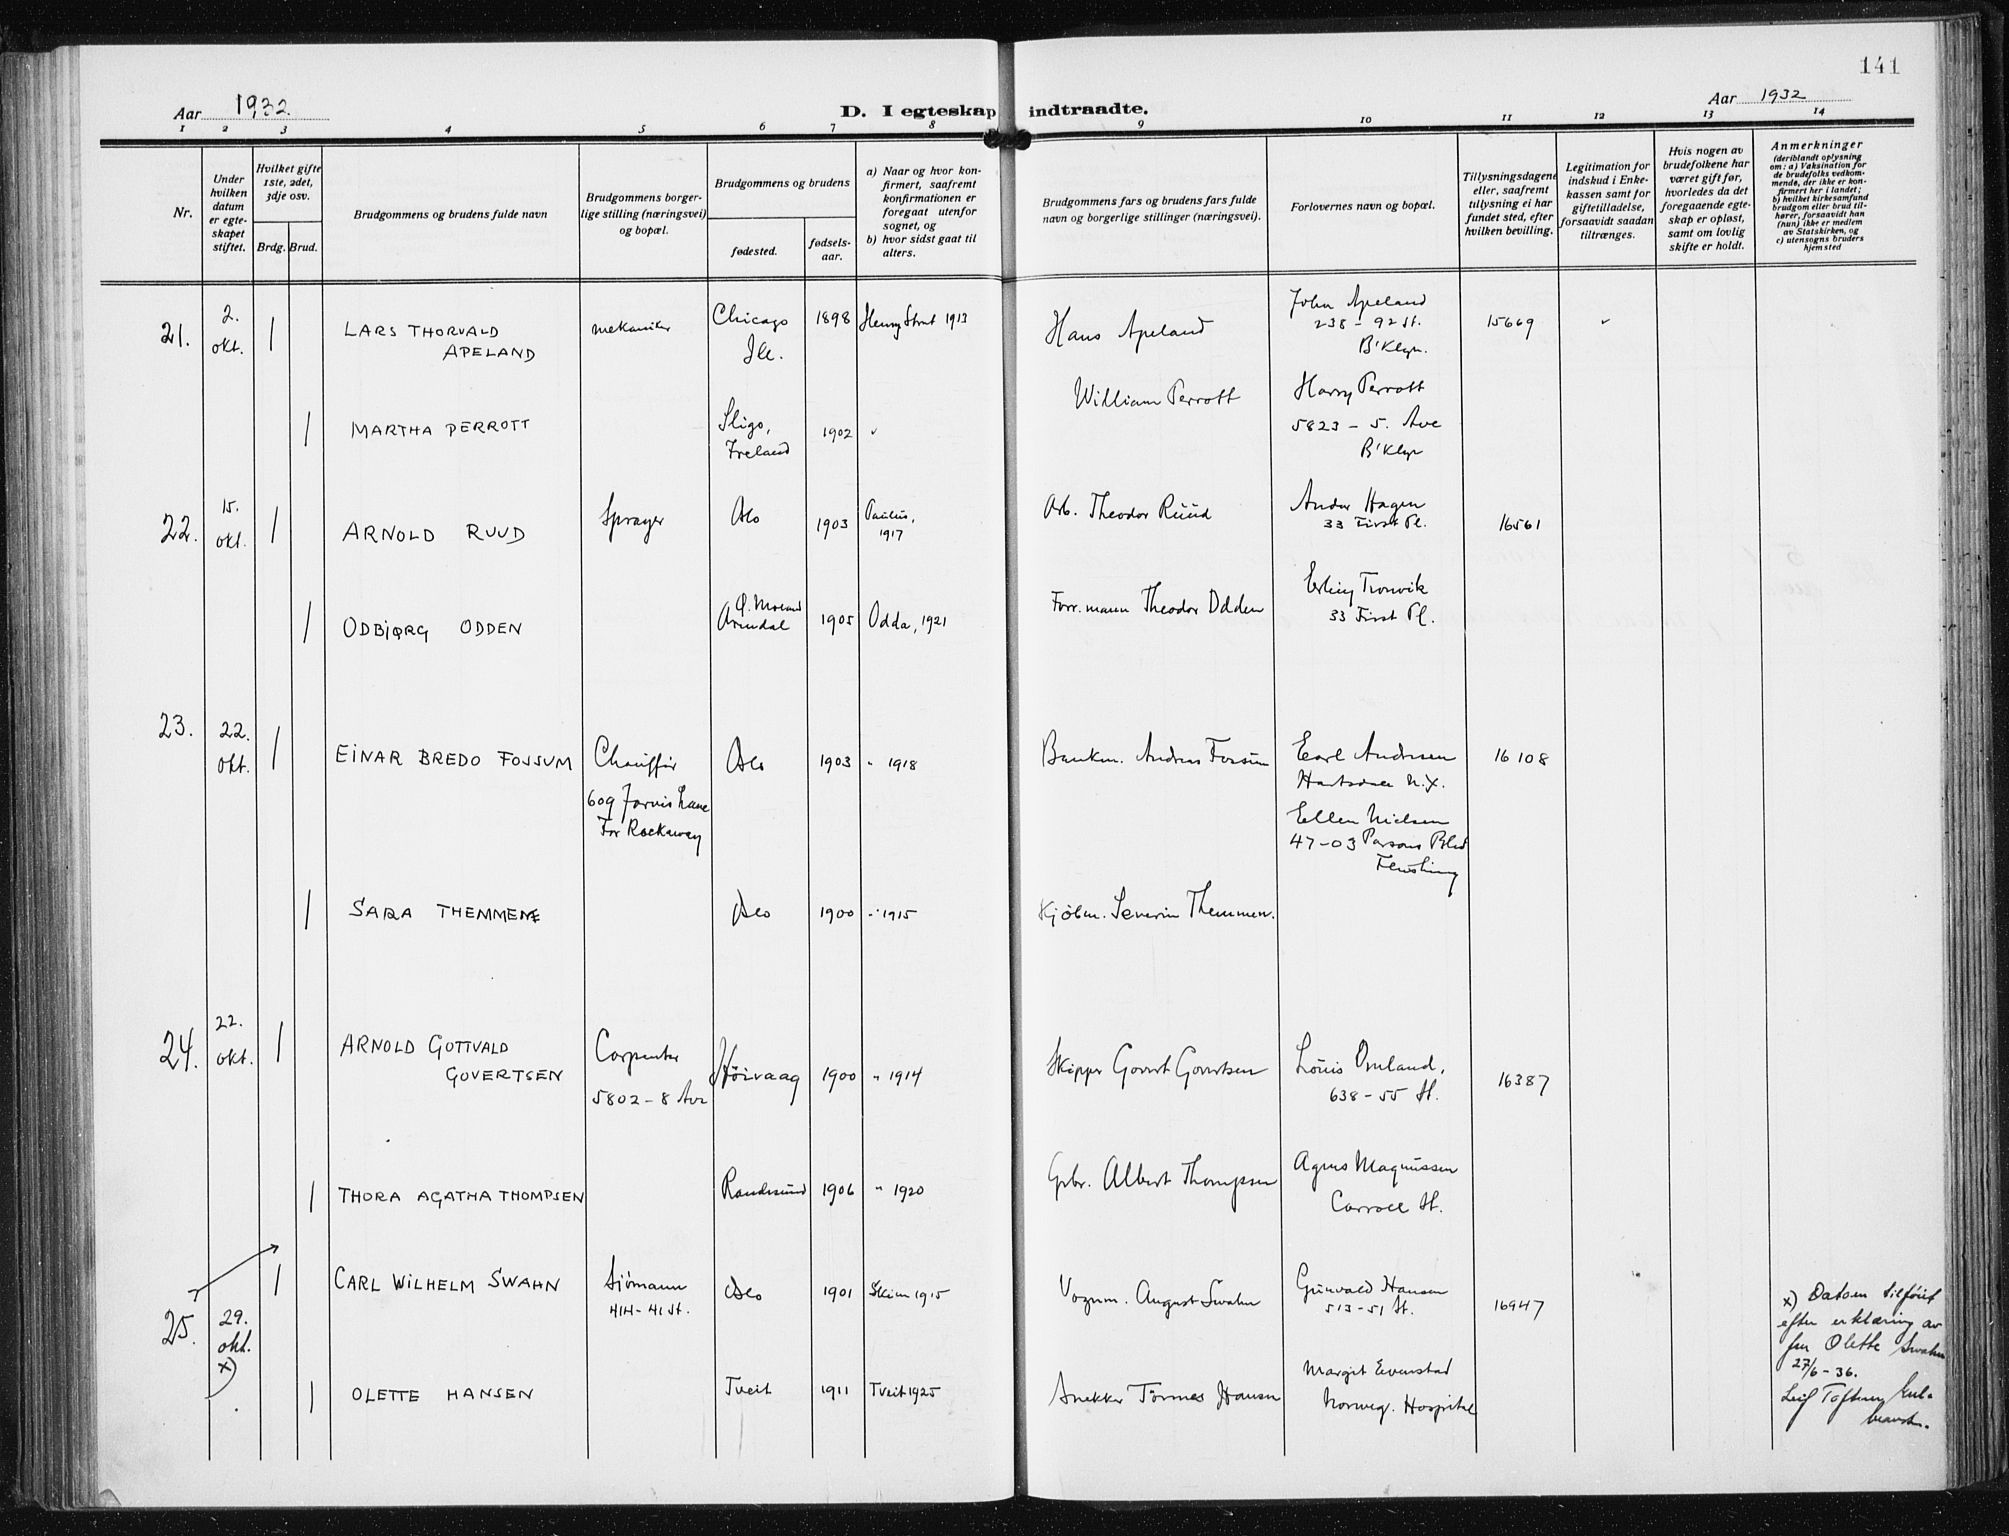 141
Aar 1932.
D. I egteskap indtraadte.
Aar 1932
1 2 3 4 5 6 7 8 9 10 11 12 13 14
Nr.
Under
hvilken
datum
er egte-
skapet
stiftet.
Hvilket gifte
1ste, 2det,
3dje osv.
Brdg. Brud.
Brudgommens og brudens fulde navn
Brudgommens borger-
lige stilling (næringsvei)
og bopæl.
Brudgommens og brudens
fødested.
fødsels-
aar.
a) Naar og hvor kon-
firmert, saafremt
konfirmationen er
foregaat utenfor
sognet, og
b) hvor sidst gaat til
alters.
Brudgommens fars og brudens fars fulde
navn og borgerlige stillinger (næringsvei).
Forlovernes navn og bopæl.
Tillysningsdagene
eller, saafremt
tillysning ei har
fundet sted, efter
hvilken bevilling.
Legitimation for
indskud i Enke-
kassen samt for
giftetilladelse,
forsaavidt saadan
tiltrænges.
Hvis nogen av
brudefolkene har
været gift før,
hvorledes da det
foregaaende egte-
skap er opløst,
samt om lovlig
skifte er holdt.
Anmerkninger
(deriblandt oplysning
om: a) Vaksination for
de brudefolks vedkom-
mende, der ikke er kon-
firmert her i landet;
b) hvilket kirkesamfund
brudgom eller brud til-
hører, forsaavidt han
(hun) ikke er medlem
av Statskirken, og
c) utensogns bruders
hjemsted
21.
2.
okt.
1
LARS THORVALD
APELAND
mekaniker
Chicago
Ill.
1898
Henry Street 1913
Hans Apeland
John Apeland
238 - 92 St.
B'Klyn.
15669
1
MARTHA PERROTT
Sligo,
Ireland
1902
William Perrott
Harry Perrott
5823 - 5. Ave
B'Klyn
22.
15.
okt.
1
ARNOLD RUUD
Sprayer
Oslo
1903
Paulus,
1917
Arb. Theodor Ruud
Ander Hagen
33 First Pl.
16561
1
ODBJØRG ODDEN
Ø. Moland
Arendal
1905
Odda, 1921
Forr.mann Theodor Odden
Erling Tronvik
33 First Pl.
23.
22.
Okt.
1
EINAR BREDO FOSSUM
Chauffør
609 Jarvis Lane
Far Rockaway
Oslo
1903
" 1918
Bankm. Andreas Fossum
Earl Andresen
Hartsdale N.Y.
Ellen Nielsen
47-03 Parsons Blvd
Flushing
16108
1
SARA THEMMEN
Oslo
1900
" 1915
Kjøbm. Severin Themmen.
24.
22.
okt.
1
ARNOLD GOTTVALD
GOVERTSEN
Carpenter
5802 - 8 Ave
Høivaag
1900
" 1914
Skipper Govert Govertsen
Louis Omland,
638 - 55 St.
16387
1
THORA AGATHA THOMPSEN
Randesund
1906
" 1920
Grbr. Albert Thompsen
Agnes Magnussen
Carroll St.
25.
29.
okt.
x)
1
CARL WILHELM SWAHN
Sjömann
414 - 41 St.
Oslo
1901
Skien 1915
Vognm. August Swahn
Gunvald Hansen
513 - 51 St.
16947
x) Datoen tilföiet
efter erklæring av
fru Olette Swahn
27/6 - 36.
Leif
1
OLETTE HANSEN
Tveit
1911
Tveit 1925
Snekker Tönnes Hansen
Margit Evenstad
Norweg. Hospital